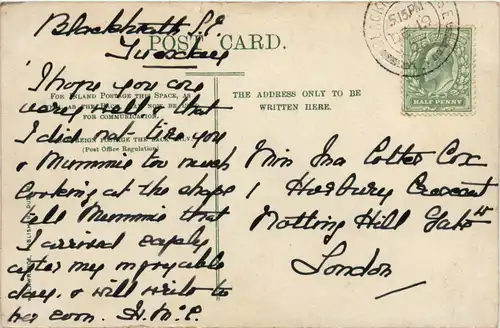 Blackheath S.E.
Tuesday
POST CARD.
FOR INLAND POSTAGE THIS SPACE, AS
WELL AS THE BACK, MAY NOW BE USED
FOR COMMUNICATION.
FOREIGN POSTAGE THE BACK ONLY.
(Post Office Regulation).
I hope you are
very well & that
I did not tire you
& Mummie too much
looking at the shops
tell Mummie that
I arrived safely
after my enjoyable
day. & will write to
her soon. H. M. C.
THE ADDRESS ONLY TO BE
WRITTEN HERE.
Miss Ina Cotter Cox
1 Horbury Crescent
Notting Hill Gate W
London
5.15 PM
HALF PENNY